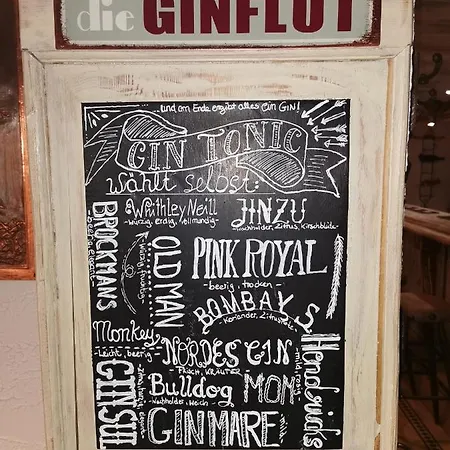 die GINFLUT
...und am Ende ergibt alles Ein GIN!
GIN TONIC
Wählt Selbst:
Whithley Neill
-würzig, erdig, vollmundig-
JINZU
-Wacholder, Zitrus, Kirschblüte-
BROCKMANS
-beerig, elegant-
OLD MAN...
-würzig, fruchtig-
PINK ROYAL
-beerig, trocken-
BOMBAY S.
-Koriander, Zitrusfrüchte-
Monkey
-Leicht, beerig-
NORDES GIN
-Frisch, KRÄUTER-
Hendricks
-mild, rosig-
GINSUL
Bulldog
-Wacholder, Weich-
MOM
GINMARE